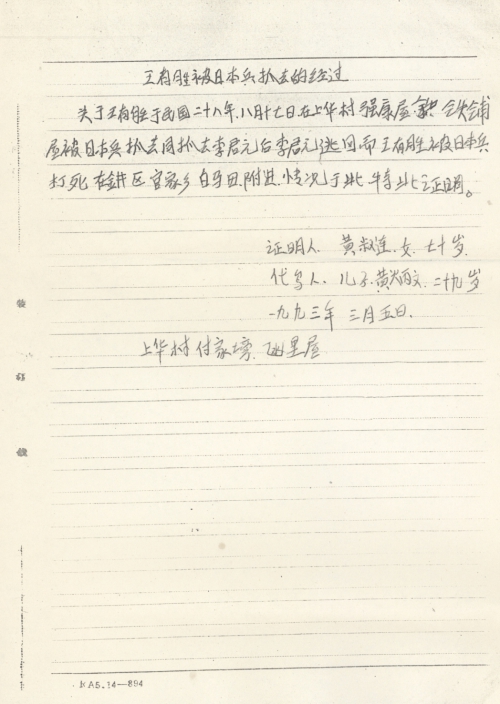 王有胜被日本兵抓去的经过
关于王有胜于民国二十八年.八月十七日在上华村强康屋 铁铺
屋被日本兵抓去同抓去李君元后李君元逃回而王有胜被日本兵
打死在 区官家乡白马田.附进.情况于此.特此证明。
证明人. 黄淑莲.女.七十岁.
代写人.儿子.黄炳文.二十九岁
一九九三年 三月五日.
上华村付家塝. 里屋
装
订
线
A5.14—894